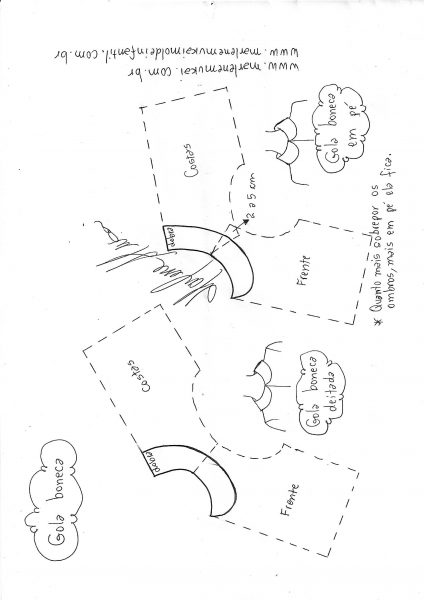 Gola boneca
Costas
dobra
Frente
Gola boneca
deitada
Costas
dobra
2 a 5 cm
Frente
Gola boneca
em pé
* Quanto mais sobrepor os
ombros, mais em pé ela fica.
www.marlenemukai.com.br
www.marlenemukaimoldeinfantil.com.br